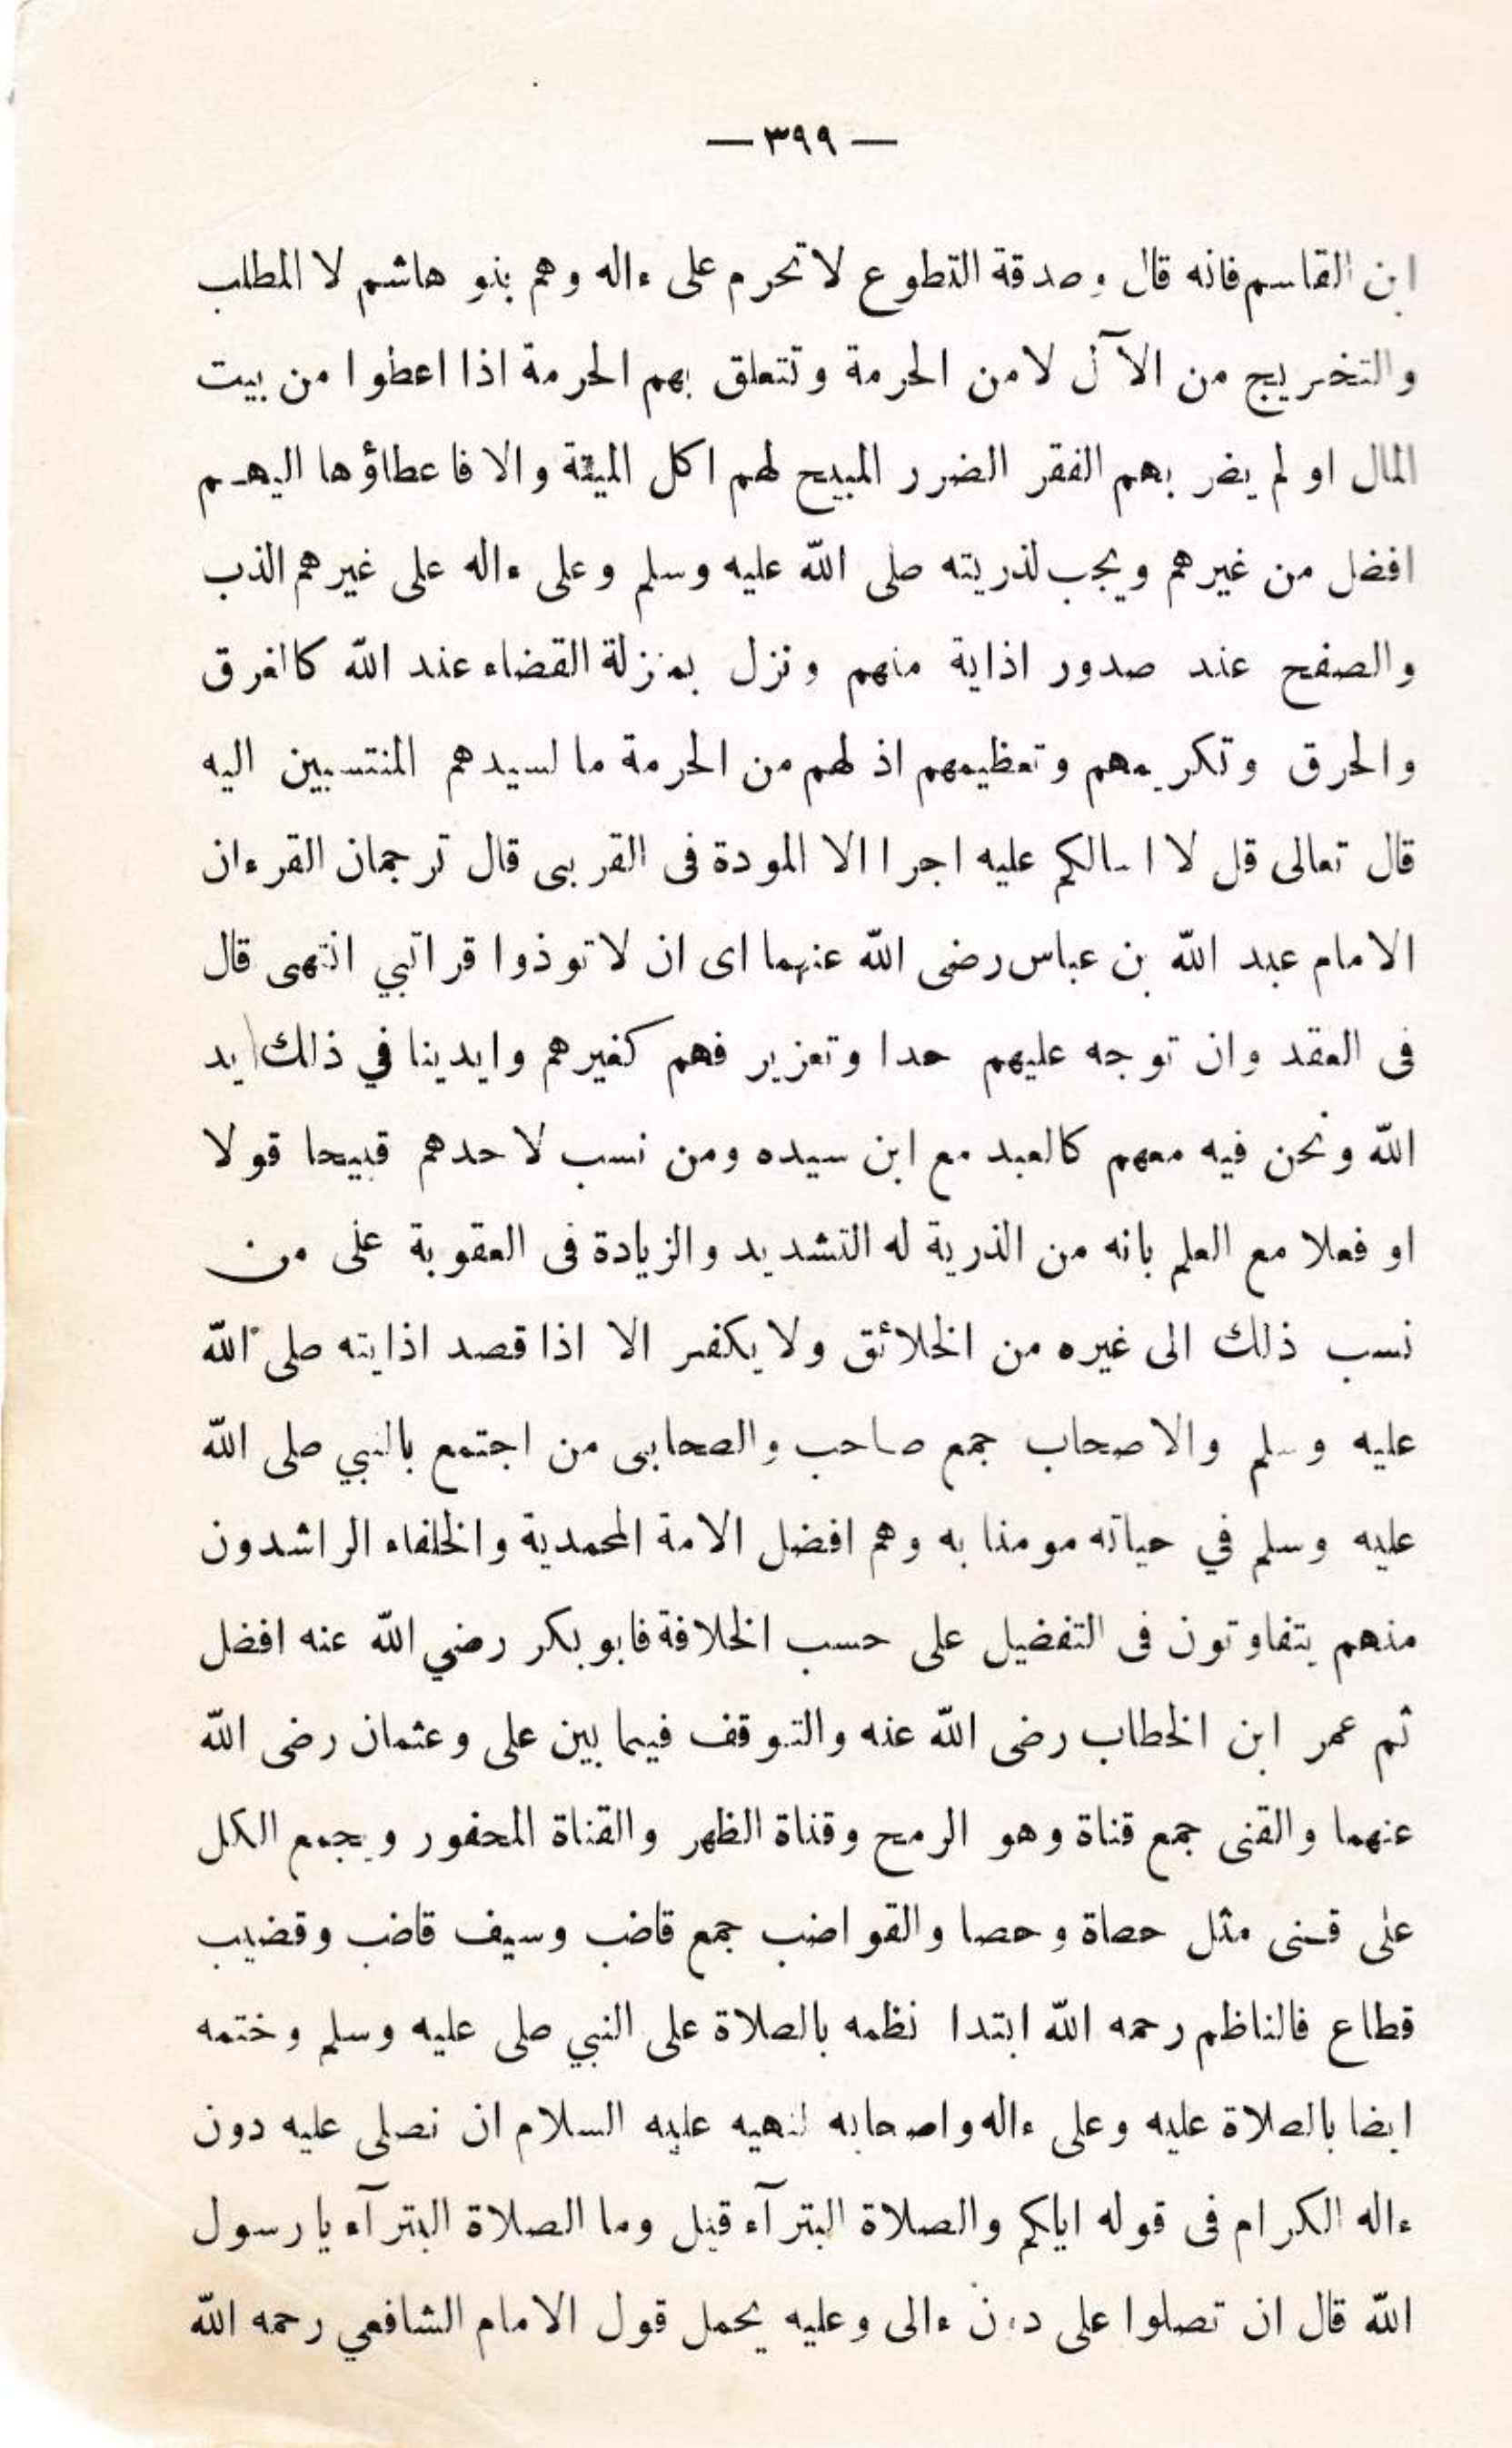 — ٣٩٩ —
ابن القاسم فانه قال وصدقة التطوع لا تحرم على ءاله وهم بنو هاشم لا المطلب
والتخريج من الآل لا من الحرمة وتتعلق بهم الحرمة اذا اعطوا من بيت
المال او لم يضر بهم الفقر الضرر المبيح لهم اكل الميتة والا فاعطاؤها اليهم
افضل من غيرهم ويجب لذريته صلى الله عليه وسلم وعلى ءاله على غيرهم الذب
والصفح عند صدور اذاية منهم ونزل بمنزلة القضاء عند الله كالغرق
والحرق وتكريمهم وتعظيمهم اذ لهم من الحرمة ما لسيدهم المنتسبين اليه
قال تعالى قل لا اسالكم عليه اجرا الا المودة فى القربى قال ترجمان القرءان
الامام عبد الله بن عباس رضى الله عنهما اى ان لا توذوا قراتبي انتهى قال
فى العقد وان توجه عليهم حدا وتعزير فهم كغيرهم وايدينا في ذلك ايد
الله ونحن فيه معهم كالعبد مع ابن سيده ومن نسب لاحدهم قبيحا قولا
او فعلا مع العلم بانه من الذرية له التشديد والزيادة فى العقوبة على من
نسب ذلك الى غيره من الخلائق ولا يكفر الا اذا قصد اذايته صلى الله
عليه وسلم والاصحاب جمع صاحب والصحابى من اجتمع بالنبي صلى الله
عليه وسلم في حياته مومنا به وهم افضل الامة المحمدية والخلفاء الراشدون
منهم يتفاوتون فى التفضيل على حسب الخلافة فابو بكر رضي الله عنه افضل
ثم عمر ابن الخطاب رضى الله عنه والتوقف فيما بين على وعثمان رضى الله
عنهما والقنى جمع قناة وهو الرمح وقناة الظهر والقناة المحفور ويجمع الكل
على قنى مثل حصاة وحصا والقواضب جمع قاضب وسيف قاضب وقضيب
قطاع فالناظم رحمه الله ابتدا نظمه بالصلاة على النبي صلى عليه وسلم وختمه
ايضا بالصلاة عليه وعلى ءاله واصحابه لنهيه عليه السلام ان نصلى عليه دون
ءاله الكرام فى قوله اياكم والصلاة البترآء قيل وما الصلاة البترآء يا رسول
الله قال ان تصلوا على دون ءالى وعليه يحمل قول الامام الشافعي رحمه الله